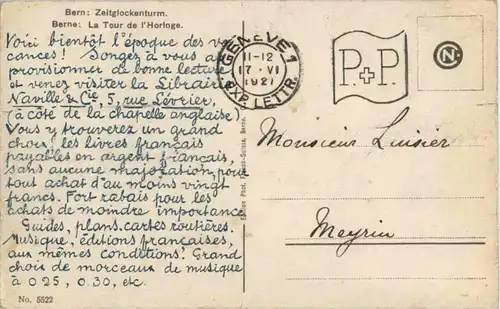 Bern: Zeitglockenturm.
Berne: La Tour de l'Horloge.
Voici bientôt l'époque des va-
cances! Songez à vous ap-
provisionner de bonne lecture
et venez visiter la Librairie
Naville & Cie, 5, rue Lévrier,
(à côté de la chapelle anglaise).
Vous y trouverez un grand
choix; les livres français
payables en argent français,
sans aucune majoration, pour
tout achat d'au moins vingt
francs. Fort rabais pour les
achats de moindre importance
Guides, plans, cartes routières.
Musique, éditions françaises,
aux mêmes conditions. Grand
choix de morceaux de musique
à 0 25, 0.30, etc.
No. 5522
GENÈVE 1
11-12
17·VI
1921
EXP. LETTR.
P.+P.
N
Monsieur Luisier
Meyrin